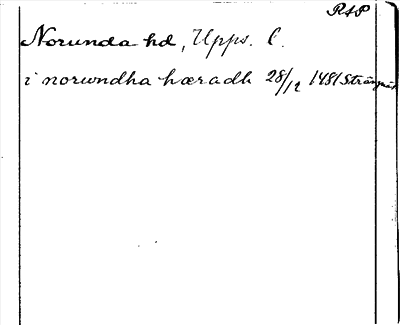 RAP
Norunda hd, Upps. C.
i norundha hæradh 28/12 1481 Strängnäs